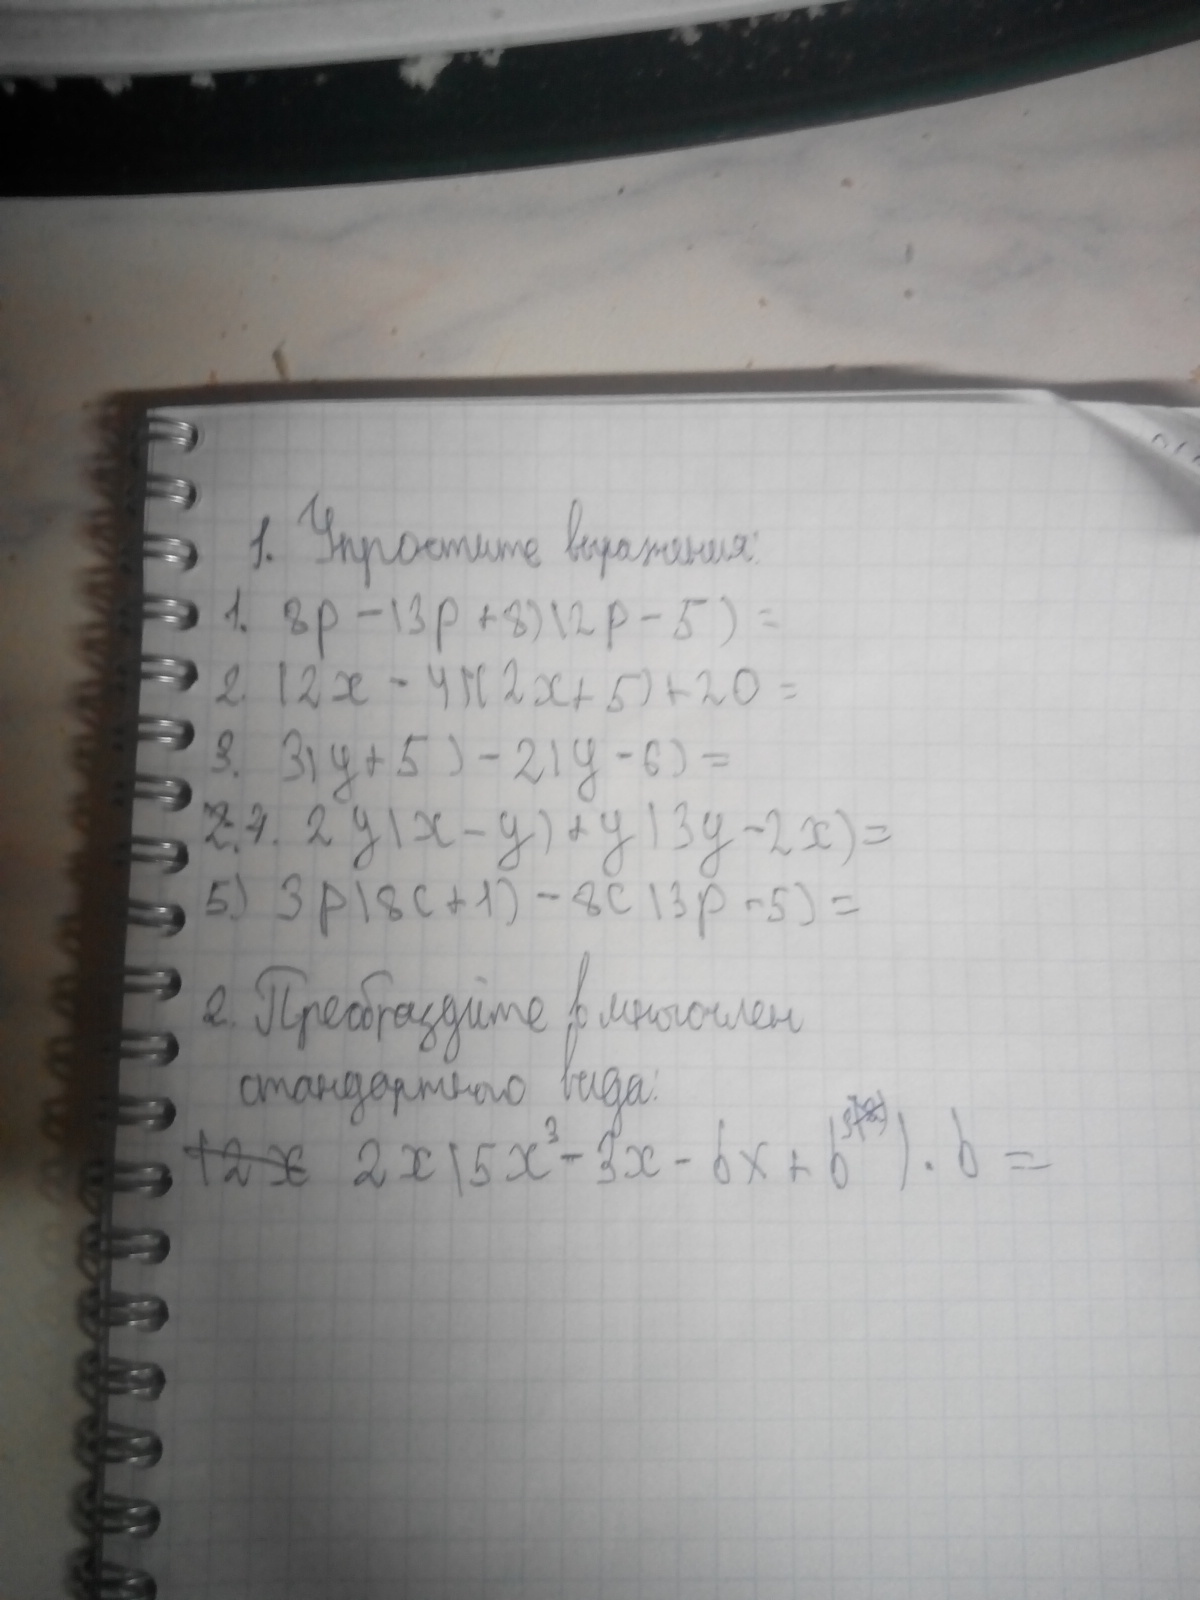 1. Упростите выражения:
1. 8p - (3p + 8)(2p - 5) =
2. (2x - 4)(2x + 5) + 20 =
3. 3(y + 5) - 2(y - 6) =
4. 2y(x - y) + y(3y - 2x) =
5) 3p(8c + 1) - 8c(3p - 5) =
2. Преобразуйте в многочлен
стандартного вида:
2x(5x³ - 3x - bx + b³) · b =